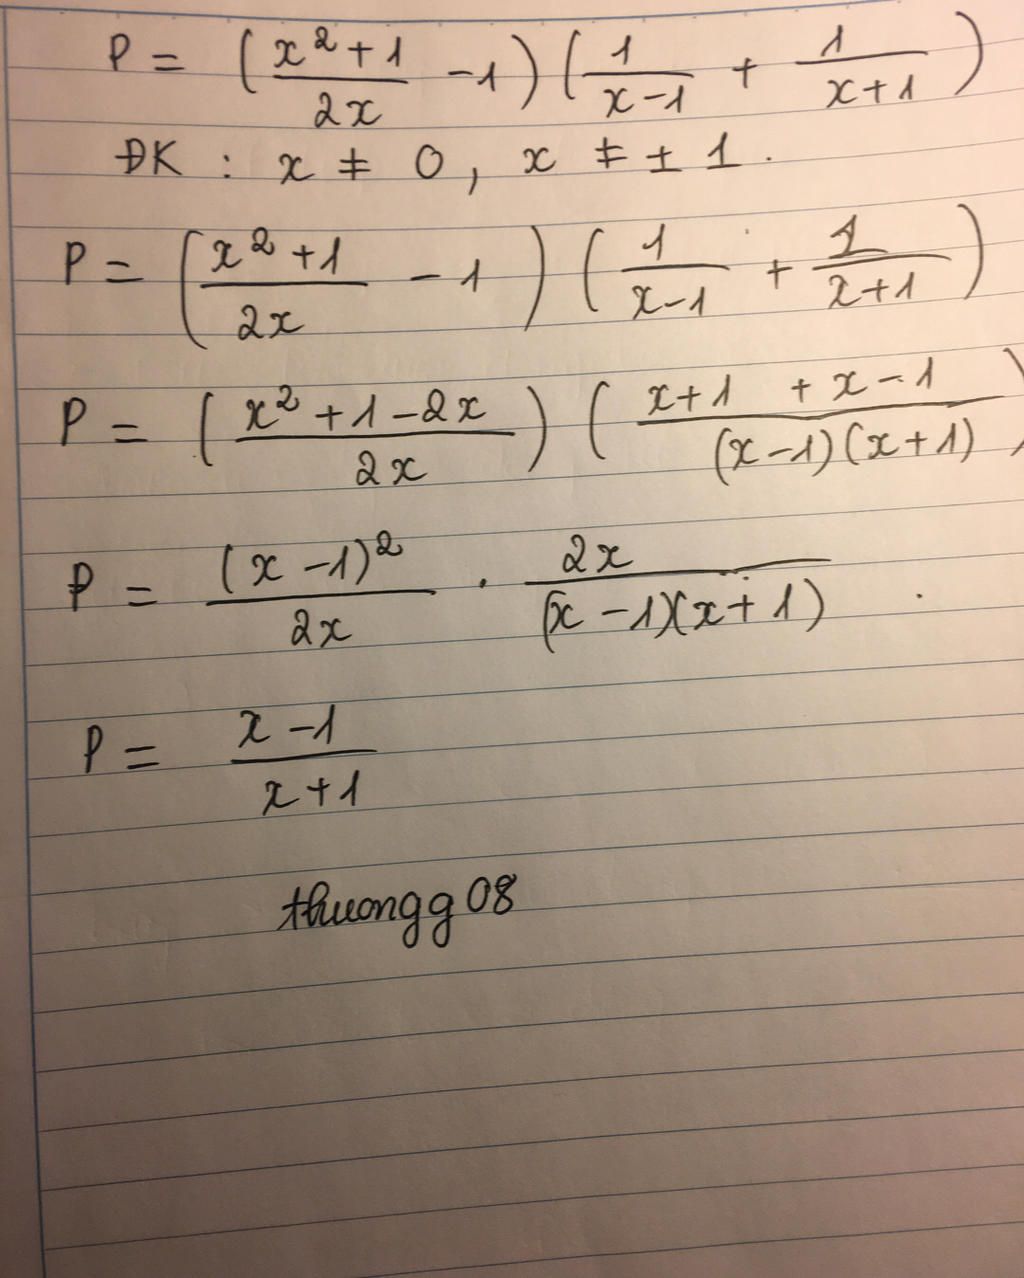 P = ( \frac{x^2+1}{2x} - 1 ) ( \frac{1}{x-1} + \frac{1}{x+1} )
ĐK : x ≠ 0, x ≠ ± 1.
P = ( \frac{x^2+1}{2x} - 1 ) ( \frac{1}{x-1} + \frac{1}{x+1} )
P = ( \frac{x^2+1-2x}{2x} ) ( \frac{x+1 + x-1}{(x-1)(x+1)} )
P = \frac{(x-1)^2}{2x} . \frac{2x}{(x-1)(x+1)} .
P = \frac{x-1}{x+1}
thuongg08